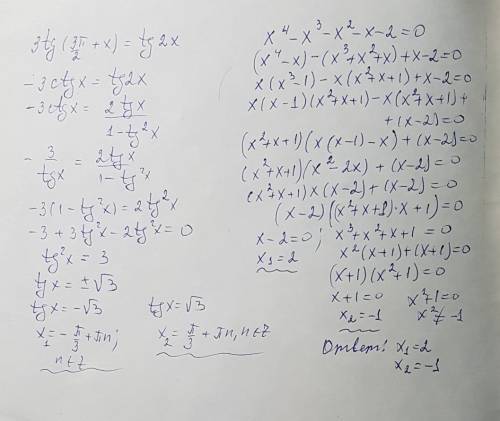 3tg(3π/2 + x) = tg2x
-3ctgx = tg2x
-3ctgx = 2tgx / 1-tg²x
- 3/tgx = 2tgx / 1-tg²x
-3(1-tg²x) = 2tg²x
-3+3tg²x-2tg²x=0
tg²x = 3
tgx = ±√3
tgx = -√3 tgx = √3
x₁ = -π/3 + πn; x₂ = π/3 + πn, n∈Z
n∈Z
x⁴-x³-x²-x-2=0
(x⁴-x)-(x³+x²+x)+x-2=0
x(x³-1)-x(x²+x+1)+x-2=0
x(x-1)(x²+x+1)-x(x²+x+1)+
+(x-2)=0
(x²+x+1)(x(x-1)-x)+(x-2)=0
(x²+x+1)(x²-2x)+(x-2)=0
(x²+x+1)x(x-2)+(x-2)=0
(x-2)((x²+x+1)·x+1)=0
x-2=0; x³+x²+x+1=0
x₁=2 x²(x+1)+(x+1)=0
(x+1)(x²+1)=0
x+1=0 x²+1=0
x₂=-1 x²≠-1
Ответ: x₁=2
x₂=-1